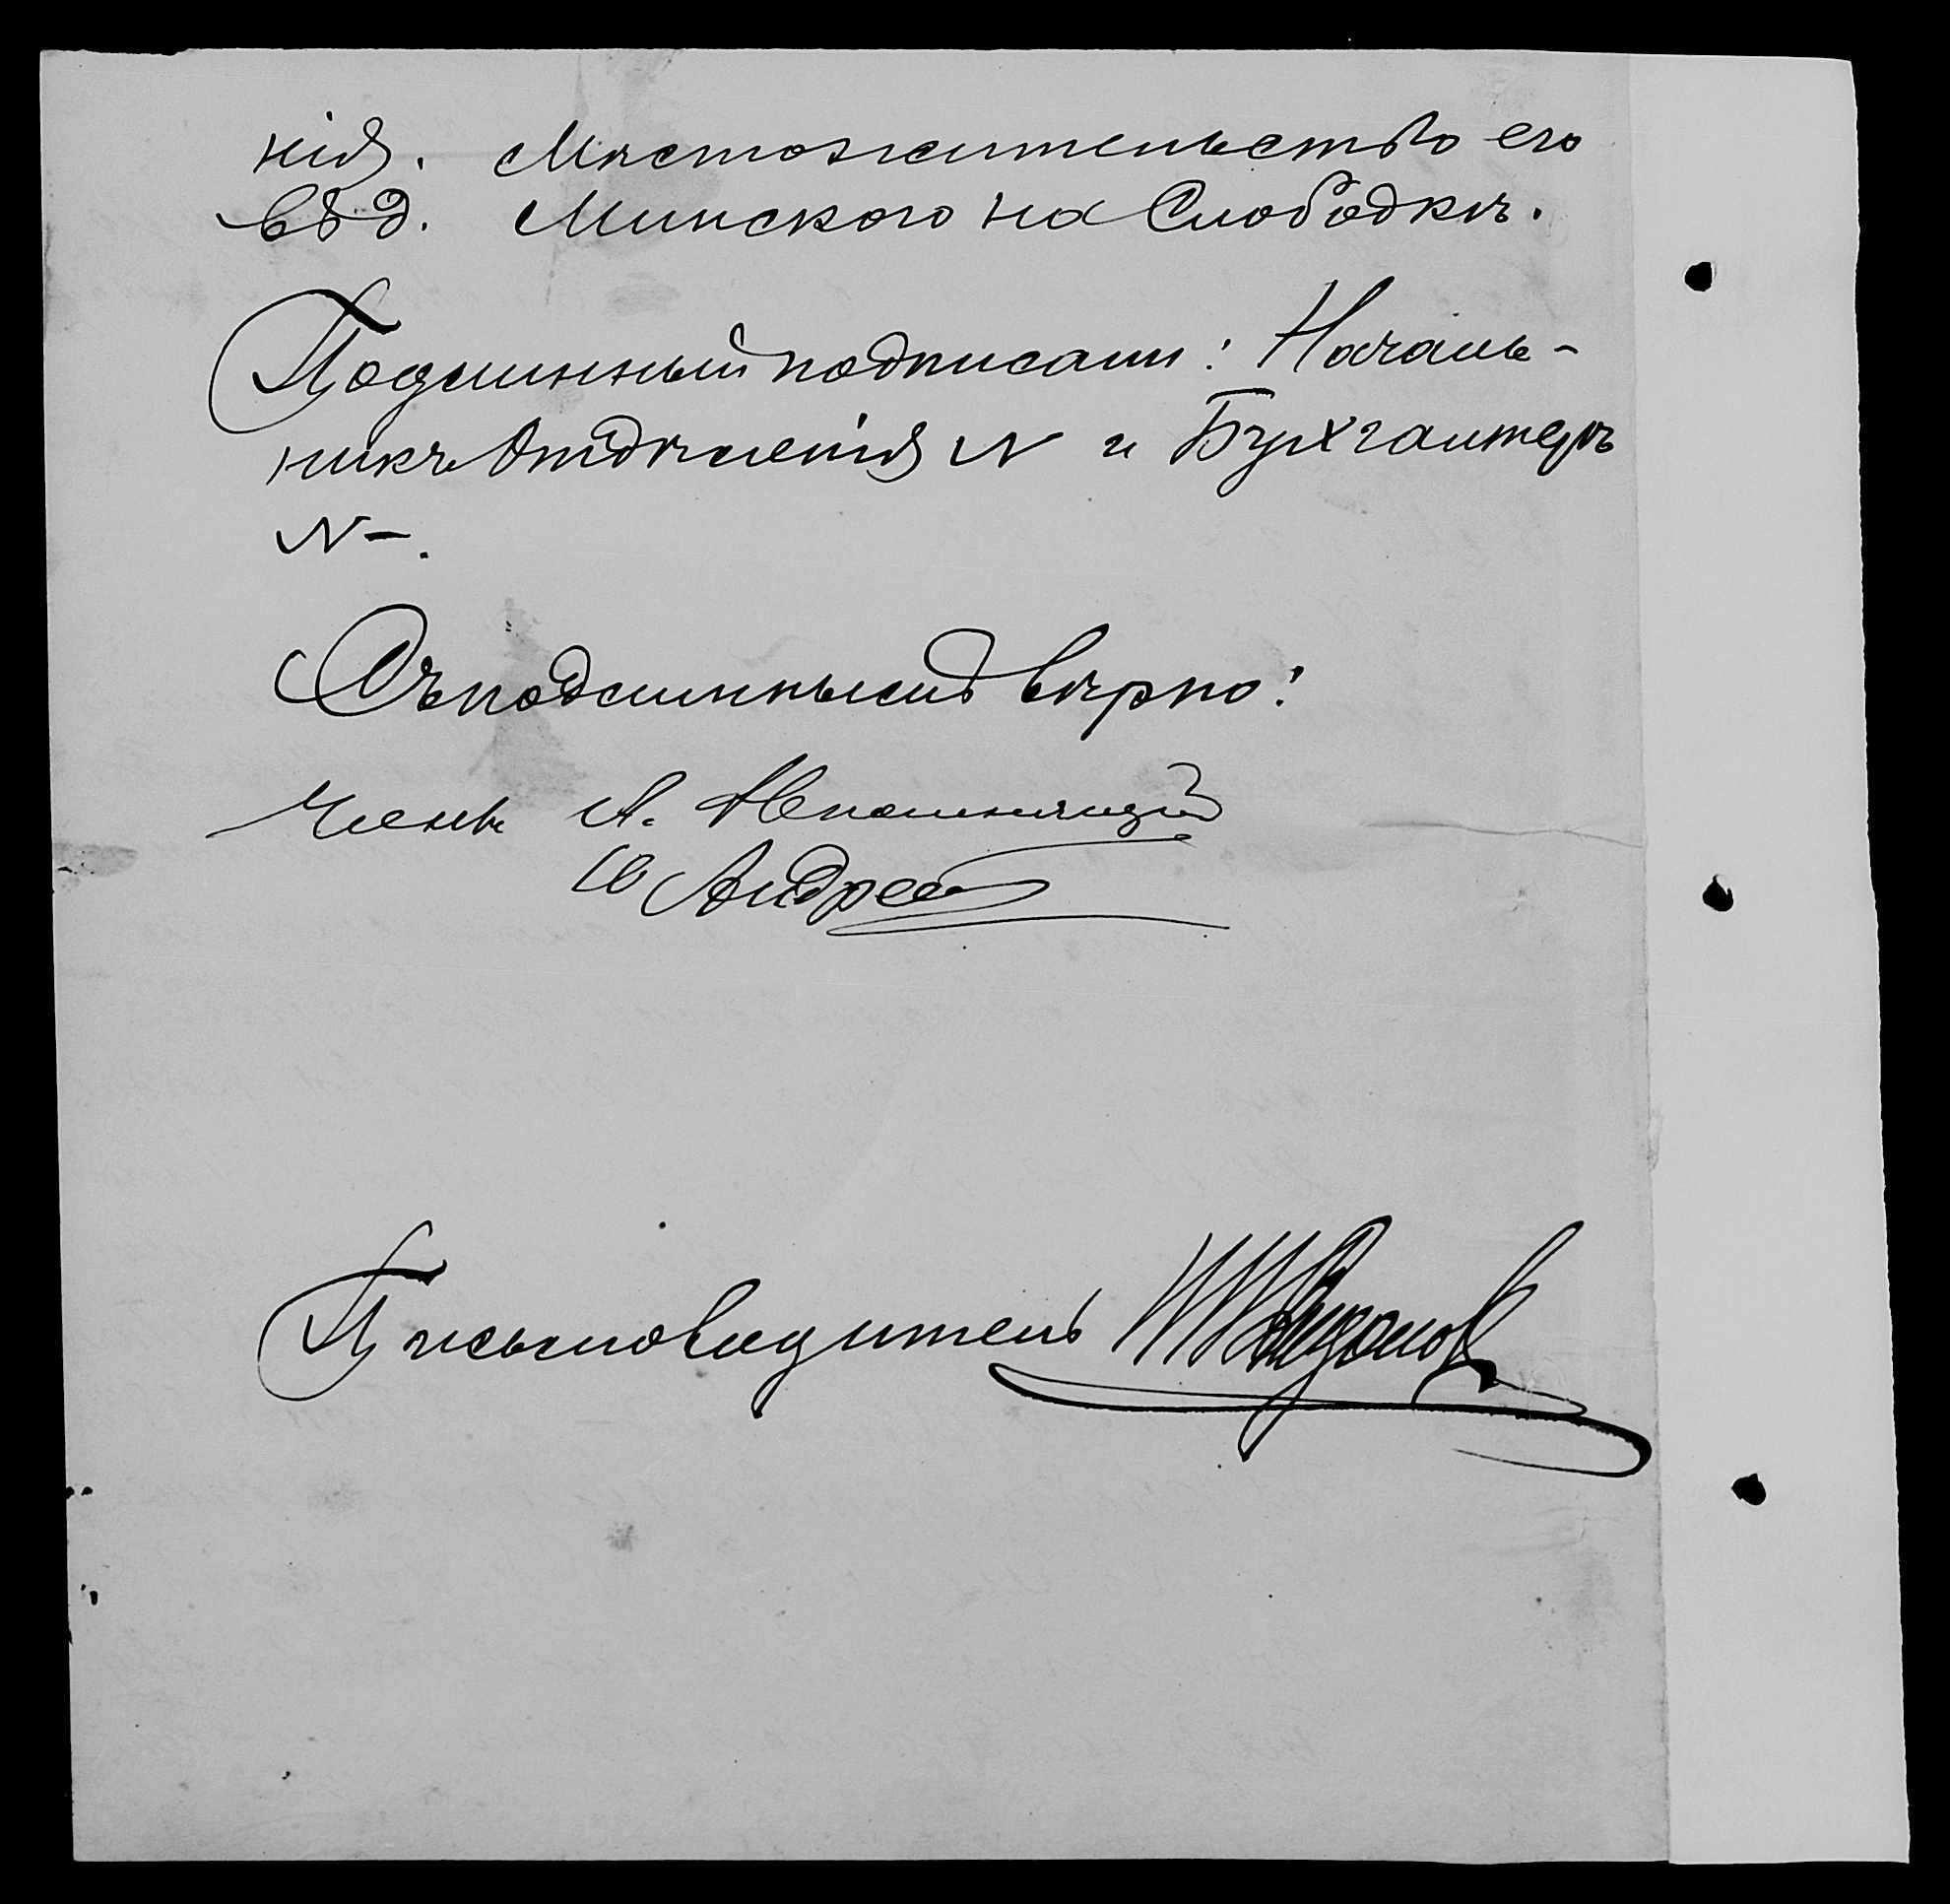 нія. Мѣстожительство его
въ д. Минского на Слободкѣ.
Подлинный подписали: Началь-
никъ Отдѣленія N и Бухгалтеръ
N-.
Съ подлиннымъ вѣрно:
Членъ А. Непомнящій
Андрее
Письмоводитель